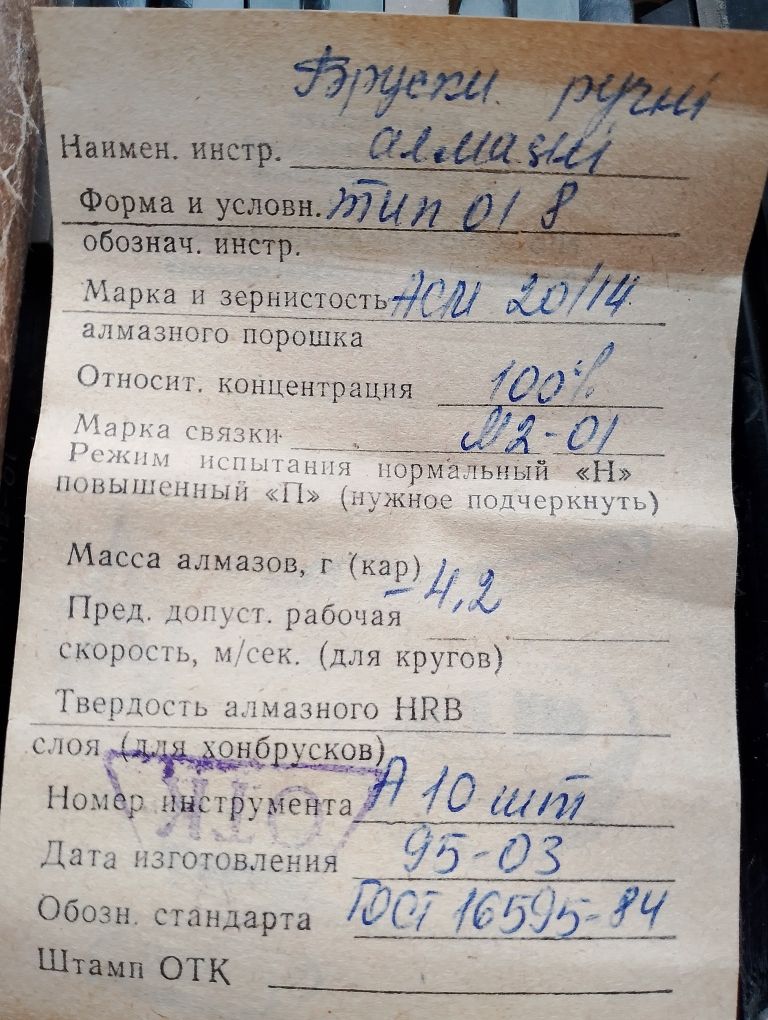 Бруски ручні
Наимен. инстр. алмазні
Форма и условн. тип 01 8
обознач. инстр.
Марка и зернистость АСМ 20/14
алмазного порошка
Относит. концентрация 100%
Марка связки М2-01
Режим испытания нормальный «Н»
повышенный «П» (нужное подчеркнуть)
Масса алмазов, г (кар) - 4,2
Пред. допуст. рабочая
скорость, м/сек. (для кругов)
Твердость алмазного HRB
слоя (для хонбрусков)
Номер инструмента А 10 шт
ОТК
Дата изготовления 95-03
Обозн. стандарта ГОСТ 16595-84
Штамп ОТК